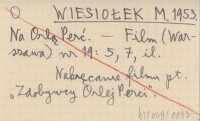 WIESIOŁEK M. 1953.
Na Orlą Perć. — Film (War-
szawa) nr 19: 5, 7, il.
Nakręcanie filmu pt.
„Zdobywcy Orlej Perci".